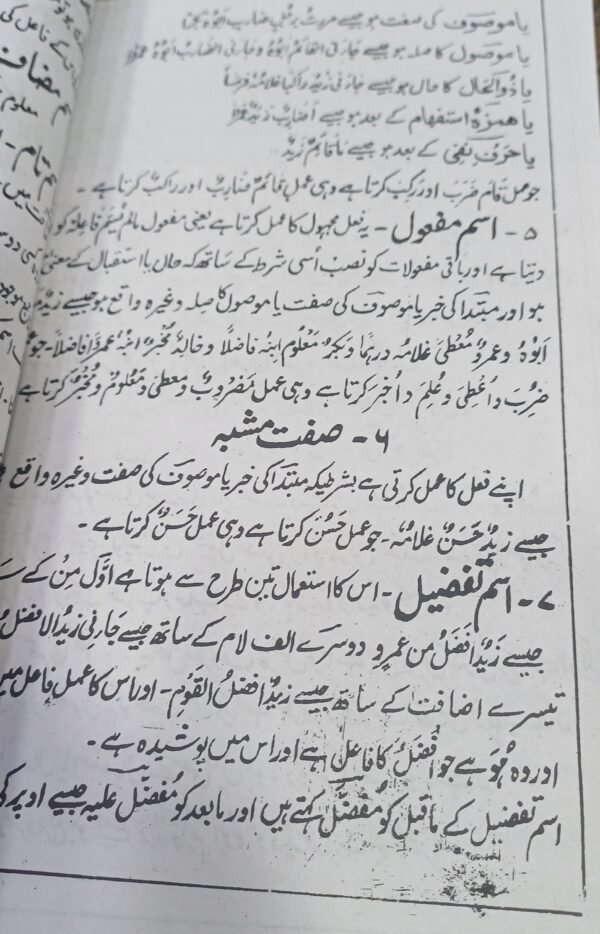 یا موصوف کی صفت ہو جیسے مررت برجلٍ ضارب ابوہ بکرًا
یا موصول کا صلہ ہو جیسے جاءنی القائم ابوہ و جاءنی الضارب ابوہ عمروًا
یا ذوالحال کا حال ہو جیسے جاءنی زیدٌ راکبًا غلامہ فرسًا
یا ھمزہ استفہام کے بعد ہو جیسے اَضاربٌ زیدٌ عمروًا
یا حرف نفی کے بعد ہو جیسے مَا قائمٌ زیدٌ
جو عمل قَامَ ضَرَبَ اور رَکِبَ کرتا ہے وہی عمل قائمٌ ضاربٌ اور راکبٌ کرتا ہے ۔
۵ ۔ اسم مفعول ۔ یہ فعل مجہول کا عمل کرتا ہے یعنی مفعول مالم یسم فاعلہ کو
دیتا ہے اور باقی مفعولات کو نصب اُسی شرط کے ساتھ کہ حال یا استقبال کے معنی
ہو اور مبتدا کی خبر یا موصوف کی صفت یا موصول کا صلہ وغیرہ واقع ہو جیسے زیدٌ
ابوہُ وعمروٌ مُعْطیً غلامُہ درہمًا وبکرٌ معلومٌ ابنُہ فاضلًا وخالدٌ مُخبَرٌ ابنُہ عمروًا فاضلًا۔ جو
ضُرِبَ و اُعْطِیَ و عُلِمَ و اُخبِرَ کرتا ہے وہی عمل مَضروبٌ و معطیً و مَعلومٌ و مُخبَرٌ کرتا ہے
۶ ۔ صفت مشبہ
اپنے فعل کا عمل کرتی ہے بشرطیکہ مبتدا کی خبر یا موصوف کی صفت وغیرہ واقع
جیسے زیدٌ حَسَنٌ غلامُہ ۔ جو عمل حَسُنَ کرتا ہے وہی عمل حَسَنٌ کرتا ہے ۔
۷ ۔ اسم تفضیل ۔ اس کا استعمال تین طرح سے ہوتا ہے اوّل مِنْ کے
جیسے زَیدٌ اَفضَلُ من عمرٍو دوسرے الف لام کے ساتھ جیسے جاءنی زیدُ الافضلُ
تیسرے اضافت کے ساتھ جیسے زیدٌ افضلُ القَومِ ۔ اور اس کا عمل فاعل میں
اور وہ ھُوَ ہے جو اَفضَلُ کا فاعل ہے اور اس میں پوشیدہ ہے ۔
اسم تفضیل کے ماقبل کو مُفضَّل کہتے ہیں اور مابعد کو مُفضَّل علیہ جیسے اوپر کی